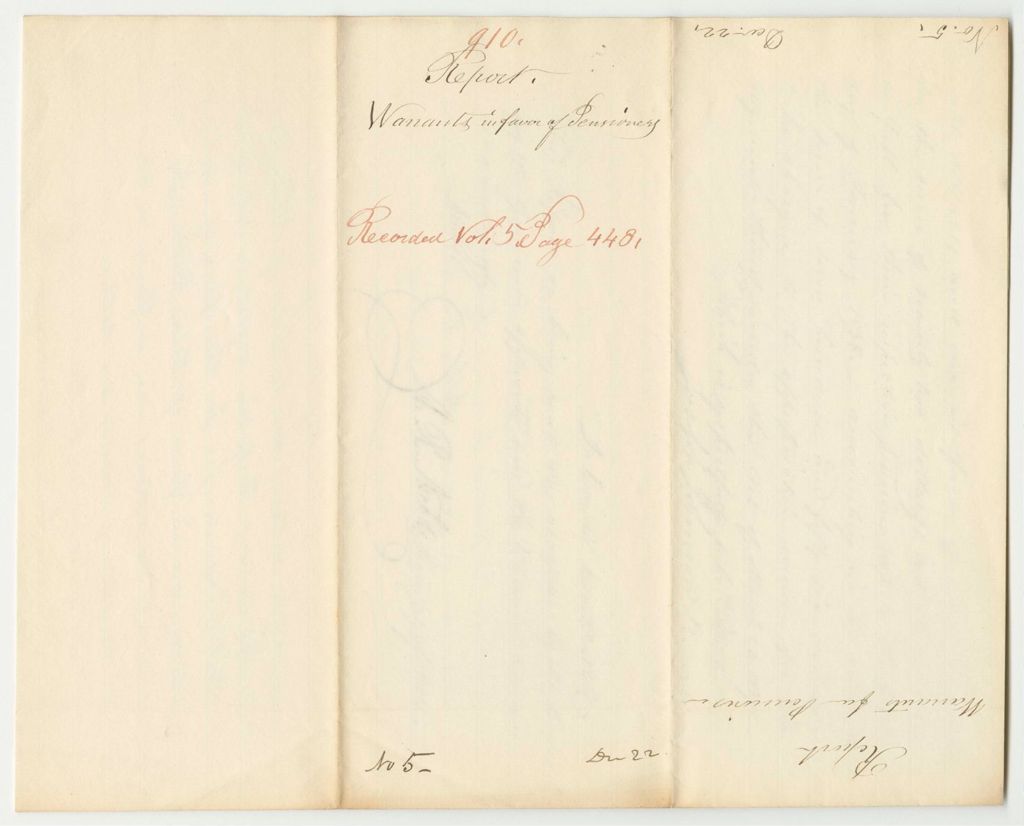 910.
Report.
Warrants in favor of Pensioners
Recorded Vol. 5 Page 448.
No 5-
Dec 22
Report
Warrants for Pensions
Dec. 22,
No. 5,